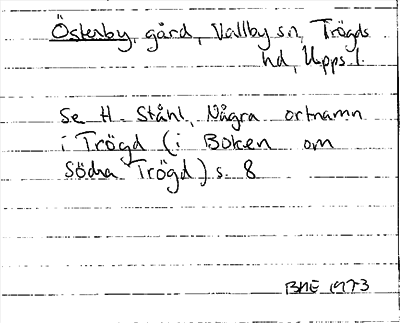 Österby, gård, Vallby sn, Trögds
hd, Upps l.
Se H. Ståhl, Några ortnamn
i Trögd (i Boken om
Södra Trögd) s. 8
BHE 1973